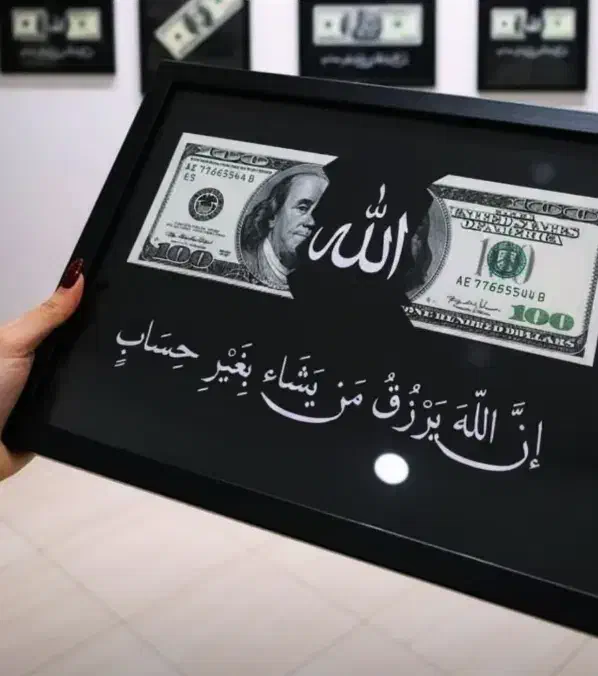 100
AE 77665564 B
E5
100
الله
THE UNITED STATES
OF AMERICA
100
AE 77665544 B
100
ONE HUNDRED DOLLARS
إِنَّ اللَّهَ يَرْزُقُ مَن يَشَاء بِغَيْرِ حِسَابٍ